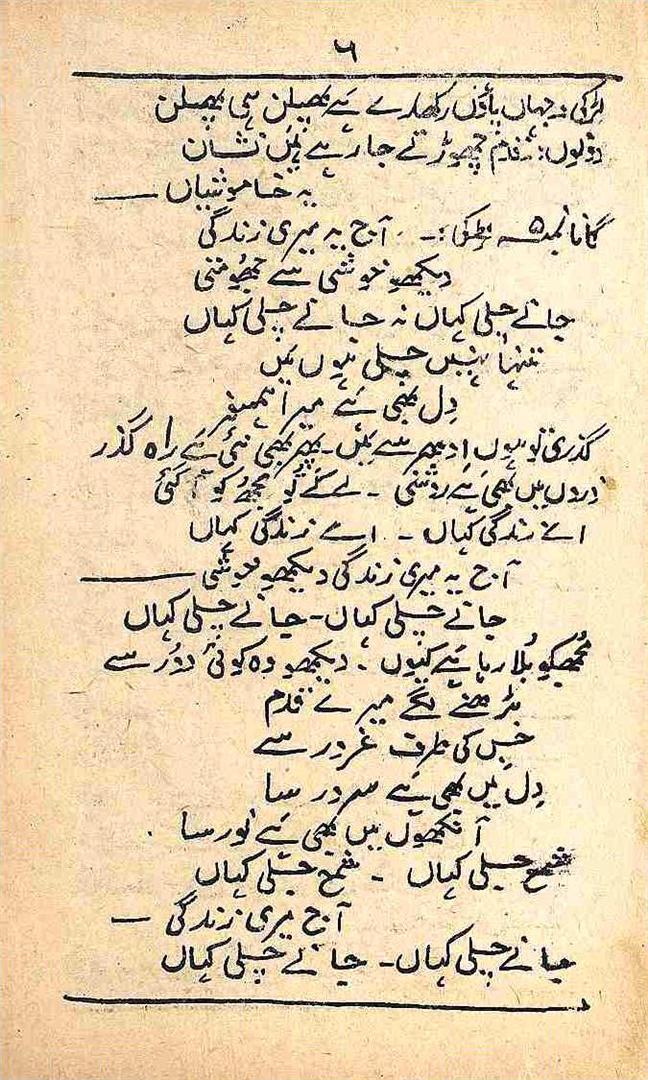 ۶
لڑکی:۔ جہاں پاؤں رکھدے ہے پھیلن ہی پھیلن
دونوں:۔ قدم چھوڑتے جا رہے ہیں نشان
یہ خاموشیاں ——
گانا نمبر ۵ لڑکی:۔ آج یہ میری زندگی
دیکھو خوشی سے جھومتی
جانے چلی کہاں نہ جانے چلی کہاں
تنہا نہیں چلی ہوں میں
دِل بھی ہے میرا ہمسفر
گذری تو ہوں اِدھر سے میں۔ پھر بھی نئی ہے راہ گذر
ذروں میں بھی ہے روشنی ۔ لے کے تو مجھکو آ گئی
اے زندگی کہاں ۔ اے زندگی کہاں
آج یہ میری زندگی دیکھو خوشی ——
جانے چلی کہاں۔ جانے چلی کہاں
مُجھکو بُلا رہا ہے کیوں ۔ دیکھو وہ کوئی دوُر سے
بڑھنے لگے میرے قدم
جس کی طرف غرور سے
دِل میں بھی ہے سرور سا
آنکھوں میں بھی ہے نور سا
شمع چلی کہاں ۔ شمع چلی کہاں
آج میری زندگی —
جانے چلی کہاں۔ جانے چلی کہاں